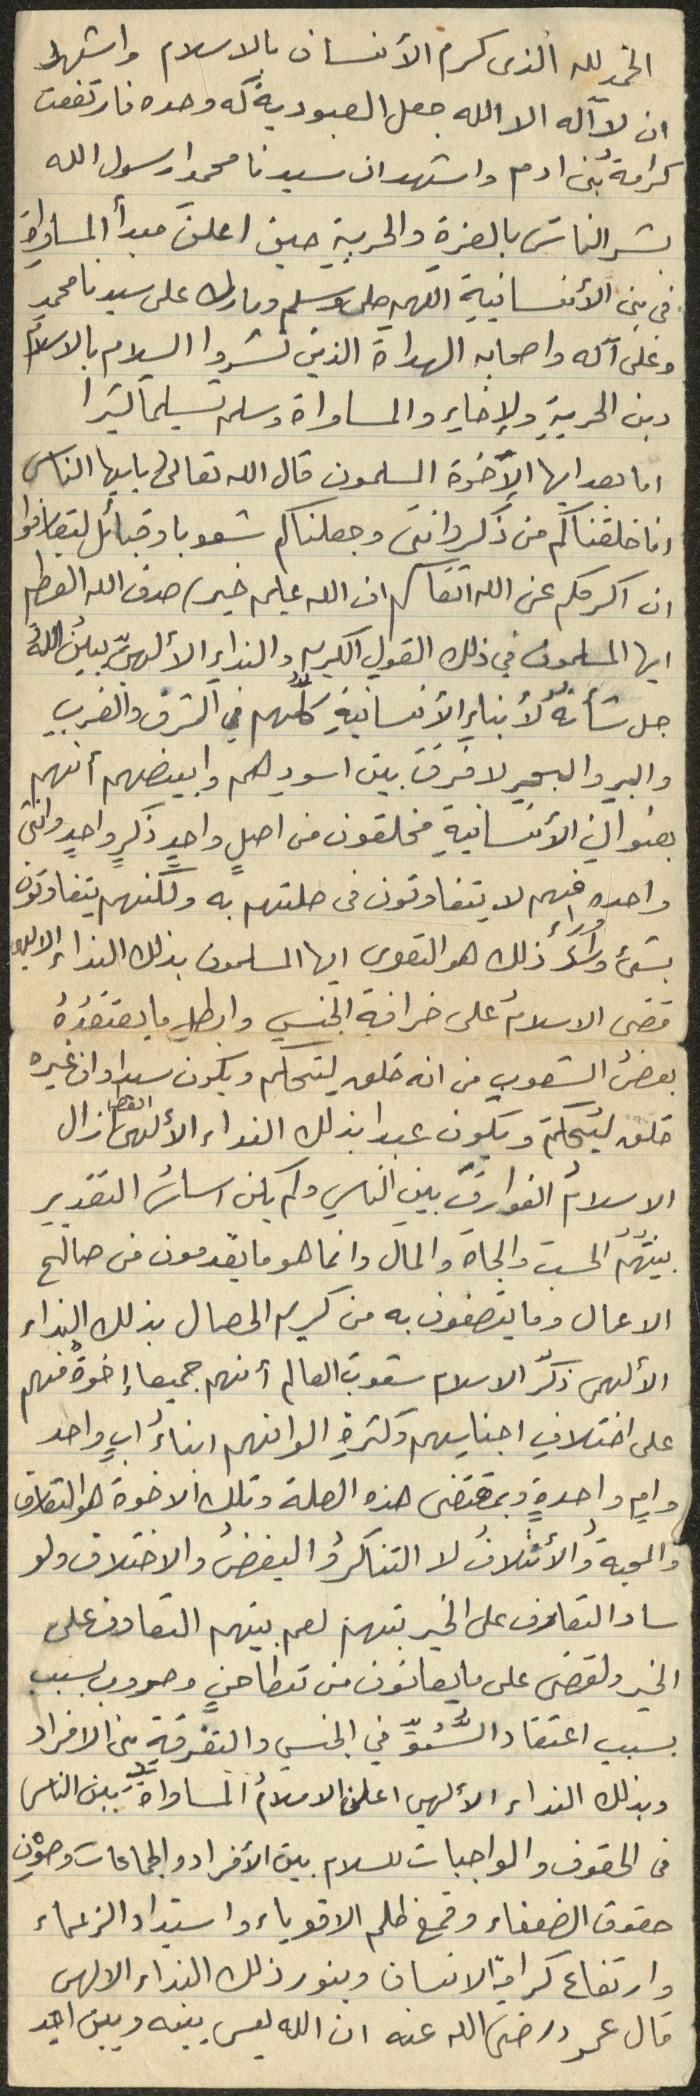 الحمد لله الذى كرم الأنسان بالاسلام واشهد
ان لا آله الا الله جعل العبودية له وحده فارتفعت
كرامة بنى ادم واشهد ان سيدنا محمدا رسول الله
بشر الناس بالعزة والحرية حين اعلن مبدأ المساواة
فى بنى الأنسانية اللهم صلى وسلم وبارك على سيدنا محمد
وعلى آله واصحابه الهداة الذين نشروا السلام بالاسلام
دين الحرية والإخاء والمساواة وسلم تسليما كثيرا
اما بعد ايها الإخوة المسلمون قال الله تعالى يايها الناس
انا خلقناكم من ذكر وانثى وجعلناكم شعوبا وقبائل لتعارفوا
ان اكرمكم عن الله اتقاكم ان الله عليم خبير صدق الله العظيم
ايها المسلمون في ذلك القول الكريم والنداء الألهى يبين الله
جل شأنه لأبناء الأنسانية كلهم في الشرق والغرب
والبر والبحر لا فرق بين اسودهم وابيضهم أنهم
بعنوان الأنسانية مخلقون من اصل واحد ذكر واحد وانثى
واحده فهم لا يتفاوتون فى صلتهم به ولكنهم يتفاوتون
بشئ وراء ذلك هو التقوى ايها المسلمون بذلك النداء الالهى
قضى الاسلام على خرافة الجنس وابطل ما يعتقده
بعض الشعوب من انه خلق ليتحكم ويكون سيدا وان غيره
خلق ليتحكم ويكون عبدا بذلك النداء الألهى ازال
الاسلام الفوارق بين الناس ولم يكن اساس التقدير
بينهم الحسب والجاه والمال وانما هو ما يقدمون من صالح
الاعمال وما يتصفون به من كريم الخصال بذلك النداء
الألهى ذكر الاسلام شعوب العالم أنهم جميعا إخوة فهم
على اختلاف اجناسهم وكثرة الوانهم ابناء اب واحد
وام واحدة وبمقتضى هذه الصلة وتلك الاخوة هو التعارف
والمحبة والأئتلاف لا التناكر والبغض والاختلاف ولو
ساد التعارف على الخير بينهم لعم بينهم التعاون على
الخير ولقضى على ما يعانون من تطاحن وحروب بسبب
بسبب اعتقاد السمو في الجنس والتفرقة بين الافراد
وبذلك النداء الألهى اعلن الاسلام المساواة بين الناس
فى الحقوق والواجبات للسلام بين الأفراد والجماعات وصون
حقوق الضعفاء وقمع ظلم الاقوياء واستبداد الزعماء
وارتفاع كرامة الانسان وبنور ذلك النداء الالهى
قال عمر رضى الله عنه ان الله ليس بينه وبين احد